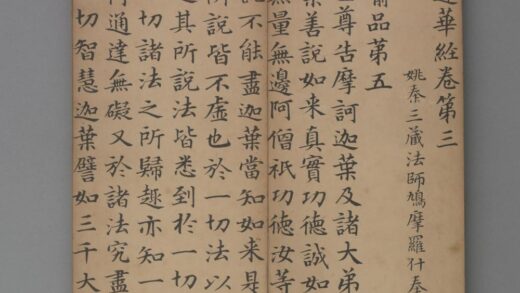 華經卷第三
姚秦三藏法師鳩摩羅什奉
喻品第五
尊告摩訶迦葉及諸大弟
善說如来真實功德誠如
無量無邊阿僧祇功德汝等
說不能盡迦葉當知如来是
所說皆不虛也於一切法以
其所說法皆悉到於一切
切諸法之所歸趣亦知一
行通達無礙又於諸法究盡
切智慧迦葉譬如三千大